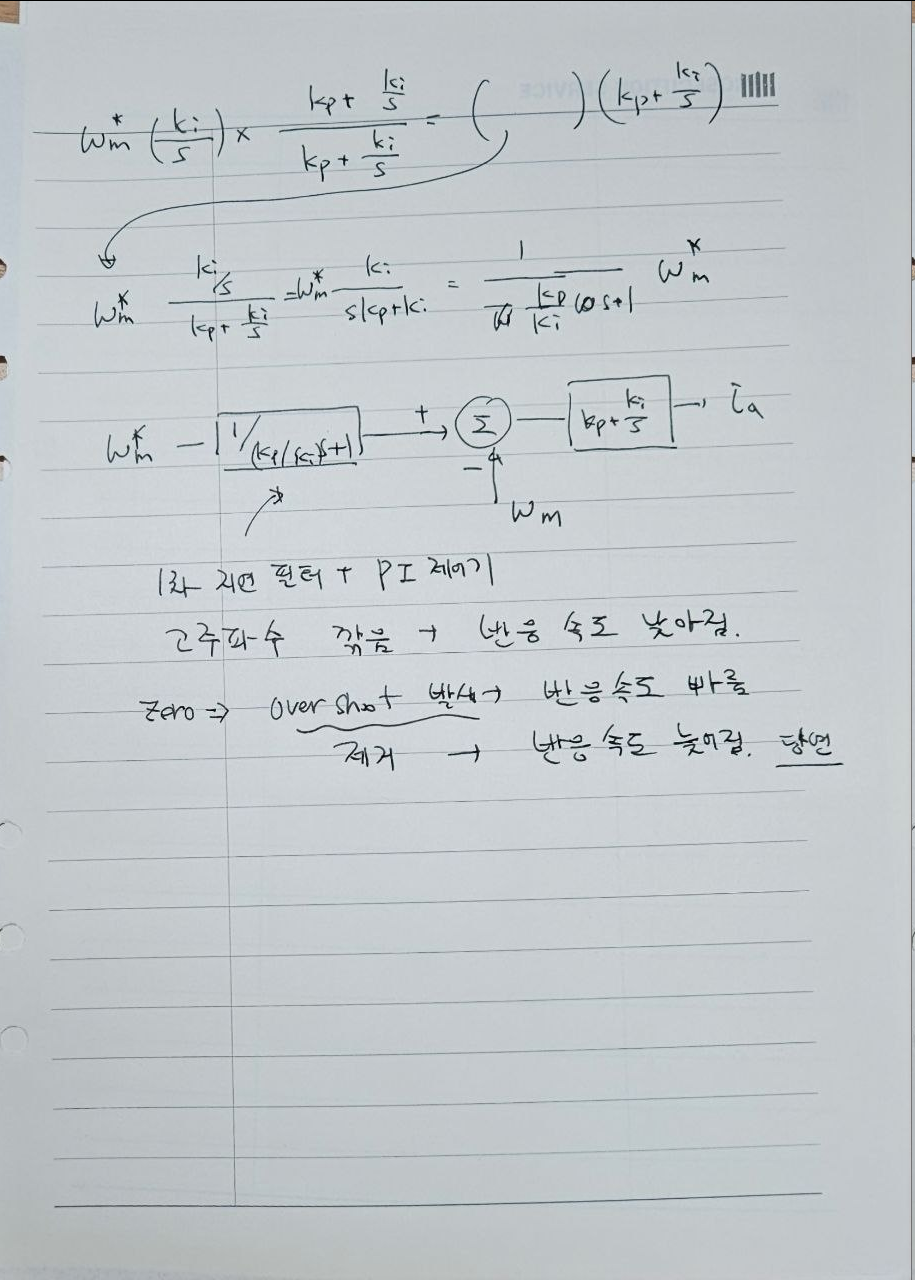 ωm* (ki/s) × (kp + ki/s)/(kp + ki/s) = ( ) (kp + ki/s)
ωm* (ki/s)/(kp + ki/s) = ωm* ki/(skp + ki) = 1/((kp/ki) s+1) ωm*
ωm* — 1/(kp/ki)s+1 + Σ — kp + ki/s → ia
− ωm
1차 지연 필터 + PI 제어기
고주파수 깎음 → 반응 속도 낮아짐.
Zero ⇒ overshoot 발생 → 반응속도 빠름
제거 → 반응속도 늦어짐. 당연